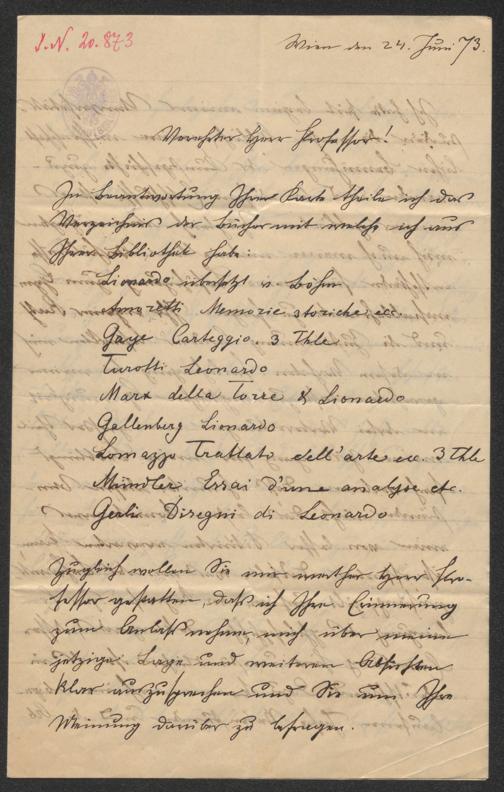 J.N. 20.873
Wien den 24. Juni 73.
Verehrter Herr Professor!
In Beantwortung Ihrer Karte theile ich das
Verzeichnis der Bücher mit welche ich aus
Ihrer Bibliothek habe:
Lionardo übersetzt v. Böhm
Amoretti Memorie storiche ecc.
Gaye Carteggio. 3 Thle
Turotti Leonardo
Marx della Torre & Lionardo
Gallenberg Lionardo
Lomazzo Trattato dell'arte ec. 3 Thle
Mündler Essai d'une analyse etc.
Gerli Disegni di Leonardo
Zugleich wollen Sie mir werther Herr Pro-
fessor gestatten, daß ich Ihre Erinnerung
zum Anlaß nehme, mich über meine
jetzige Lage und weiteren Absichten
klar auszusprechen und Sie um Ihre
Meinung darüber zu befragen.